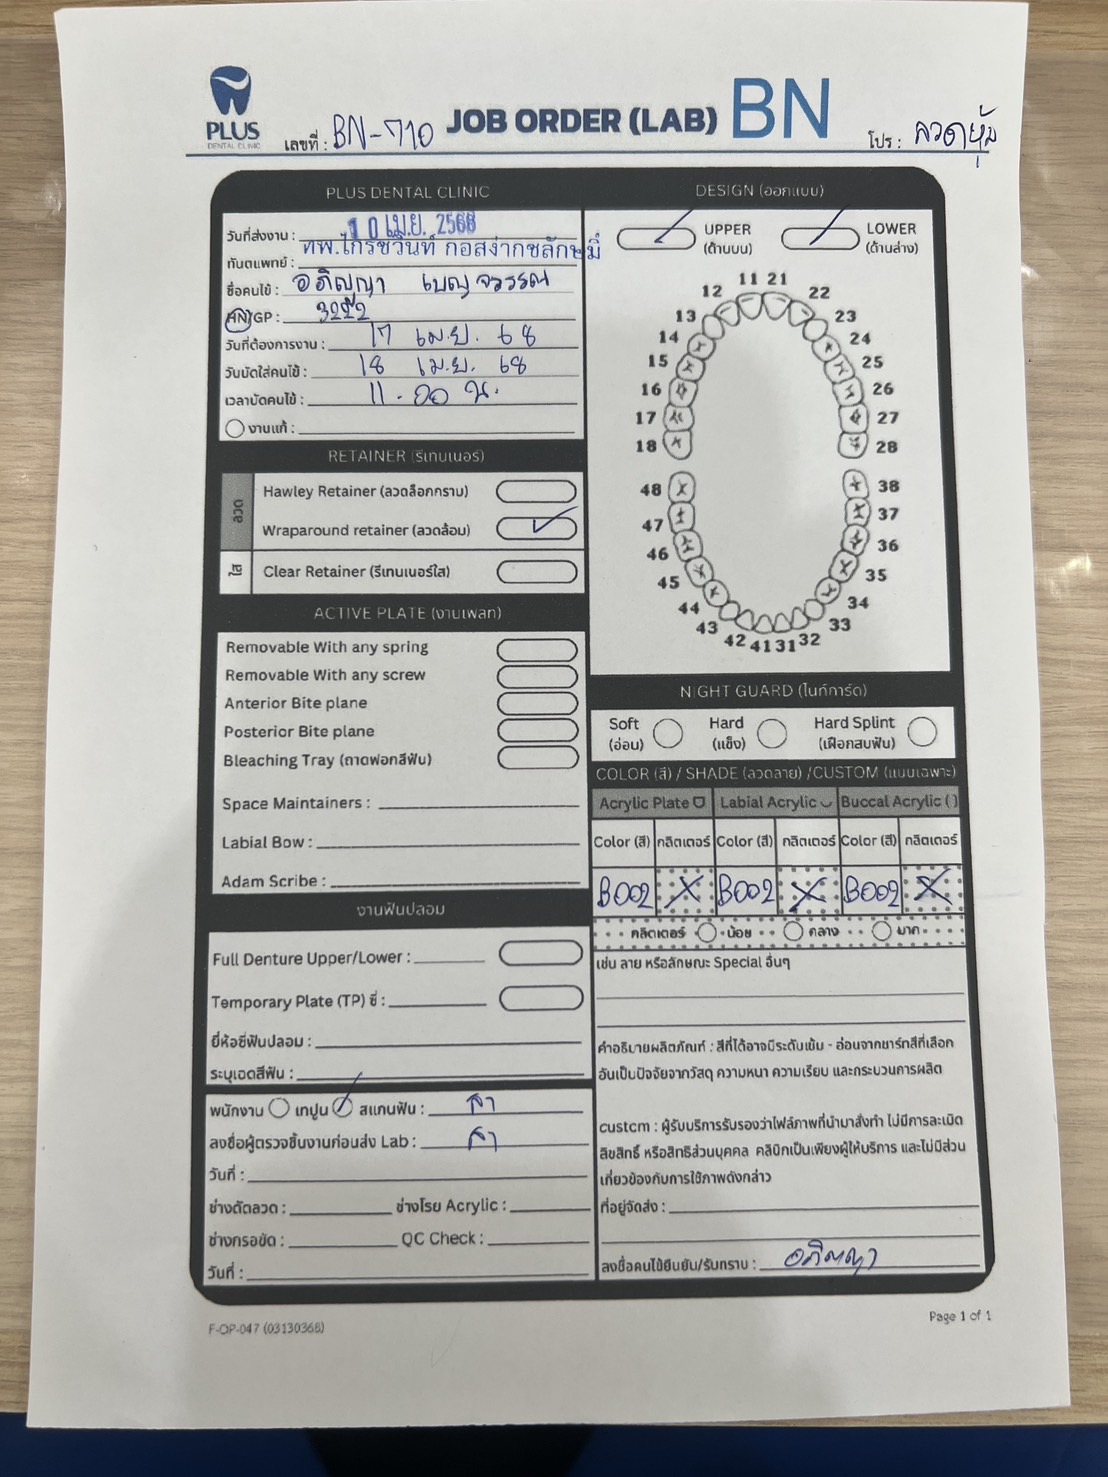 PLUS
DENTAL CLINIC
เลขที่ : BN-710
JOB ORDER (LAB) BN
โปร : ลวดหุ้ม
PLUS DENTAL CLINIC
วันที่ส่งงาน : 10 เม.ย. 2568
ทันตแพทย์ : ทพ.ไกรชวินท์ กอสง่าภชลักษมิ์
ชื่อคนไข้ : อภิญญา เบญจวรรณ
HN/GP : 3292
วันที่ต้องการงาน : 17 เม.ย. 68
วันนัดใส่คนไข้ : 18 เม.ย. 68
เวลานัดคนไข้ : 11.00 น.
งานแก้ :
RETAINER (รีเทนเนอร์)
ลวด
Hawley Retainer (ลวดล็อกกราม)
Wraparound retainer (ลวดล้อม)
ใส
Clear Retainer (รีเทนเนอร์ใส)
ACTIVE PLATE (งานเพลท)
Removable With any spring
Removable With any screw
Anterior Bite plane
Posterior Bite plane
Bleaching Tray (ถาดฟอกสีฟัน)
Space Maintainers :
Labial Bow :
Adam Scribe :
งานฟันปลอม
Full Denture Upper/Lower :
Temporary Plate (TP) ซี่ :
ยี่ห้อซี่ฟันปลอม :
ระบุเฉดสีฟัน :
พนักงาน เทปูน สแกนฟัน : สา
ลงชื่อผู้ตรวจชิ้นงานก่อนส่ง Lab : สา
วันที่ :
ช่างดัดลวด : ช่างโรย Acrylic :
ช่างกรอขัด : QC Check :
วันที่ :
DESIGN (ออกแบบ)
UPPER
(ด้านบน)
LOWER
(ด้านล่าง)
11 21
12 22
13 23
14 24
15 25
16 26
17 27
18 28
48 38
47 37
46 36
45 35
44 34
43 33
42 41 31 32
NIGHT GUARD (ไนท์การ์ด)
Soft
(อ่อน)
Hard
(แข็ง)
Hard Splint
(เฝือกสบฟัน)
COLOR (สี) / SHADE (ลวดลาย) /CUSTOM (แบบเฉพาะ)
Acrylic Plate Labial Acrylic Buccal Acrylic ( )
Color (สี) กลิตเตอร์ Color (สี) กลิตเตอร์ Color (สี) กลิตเตอร์
B002 X B002 X B002 X
กลิตเตอร์ น้อย กลาง มาก
เช่น ลาย หรือลักษณะ Special อื่นๆ
คำอธิบายผลิตภัณฑ์ : สีที่ได้อาจมีระดับเข้ม - อ่อนจากชาร์ทสีที่เลือก
อันเป็นปัจจัยจากวัสดุ ความหนา ความเรียบ และกระบวนการผลิต
custom : ผู้รับบริการรับรองว่าไฟล์ภาพที่นำมาสั่งทำ ไม่มีการละเมิด
ลิขสิทธิ์ หรือสิทธิส่วนบุคคล คลินิกเป็นเพียงผู้ให้บริการ และไม่มีส่วน
เกี่ยวข้องกับการใช้ภาพดังกล่าว
ที่อยู่จัดส่ง :
ลงชื่อคนไข้ยืนยัน/รับทราบ : อภิญญา
F-OP-047 (03130368)
Page 1 of 1